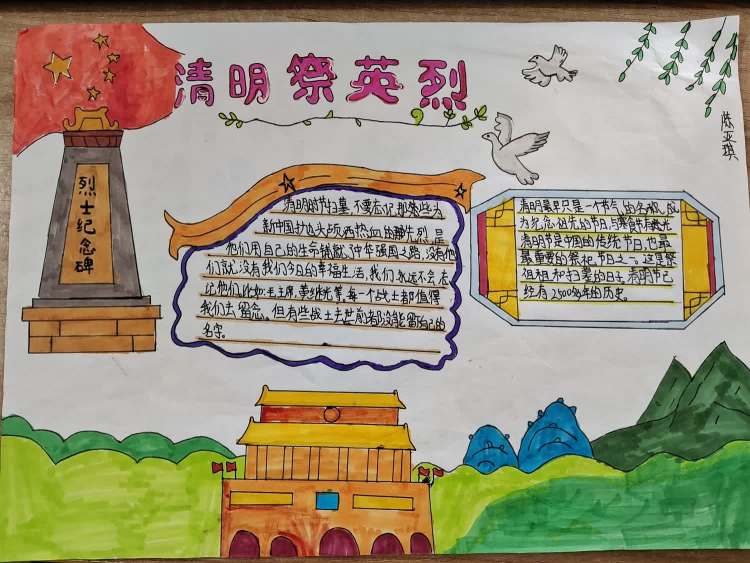 清明祭英烈
陈亚琪
烈士纪念碑
清明时节扫墓,不要忘记那些为
新中国抛头颅洒热血的先烈,是
他们用自己的生命铺就了中华强国之路,没有他
们就没有我们今日的幸福生活,我们永远不会忘
记他们,比如毛主席,黄继光等,每一个战士都值得
我们去留念。但有些战士去世前都没能留自己的
名字。
清明最早只是一个节气的名称,成
为纪念祖先的节日,与寒食节有关
清明节是中国的传统节日,也是
最重要的祭祀节日之一,这是祭
祖和扫墓的日子,清明节已
经有2500多年的历史。